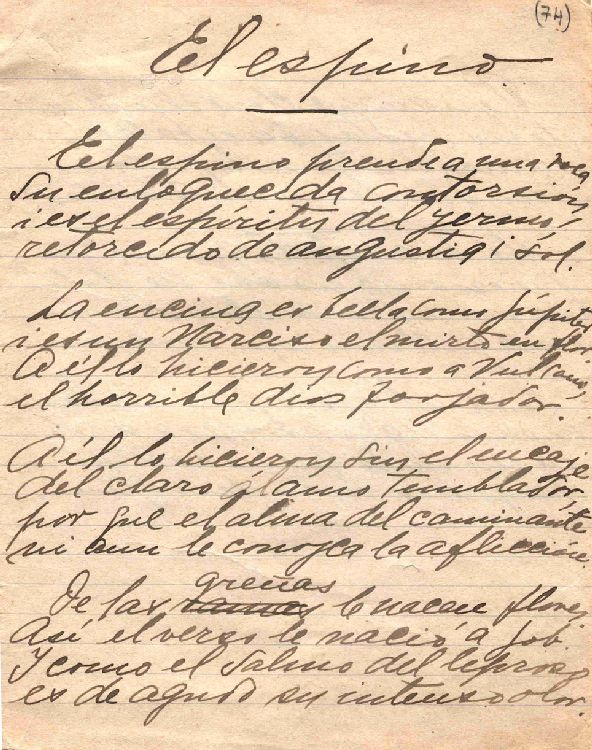 (74)
El espino
El espino prende a una roca
su enloquecida contorsión,
i es el espíritu del yermo,
retorcido de angustia i sol.
La encina es bella como Júpiter
i es un Narciso el mirto en flor.
A él lo hicieron como a Vulcano,
el horrible dios forjador.
A él lo hicieron sin el encaje
del claro álamo temblador,
por que el alma del caminante
ni aun le conozca la aflicción.
greñas
De las ramas le nacen flores
Así el verso le nació a Job.
Y como el salmo del leproso
es de agudo su intenso olor.